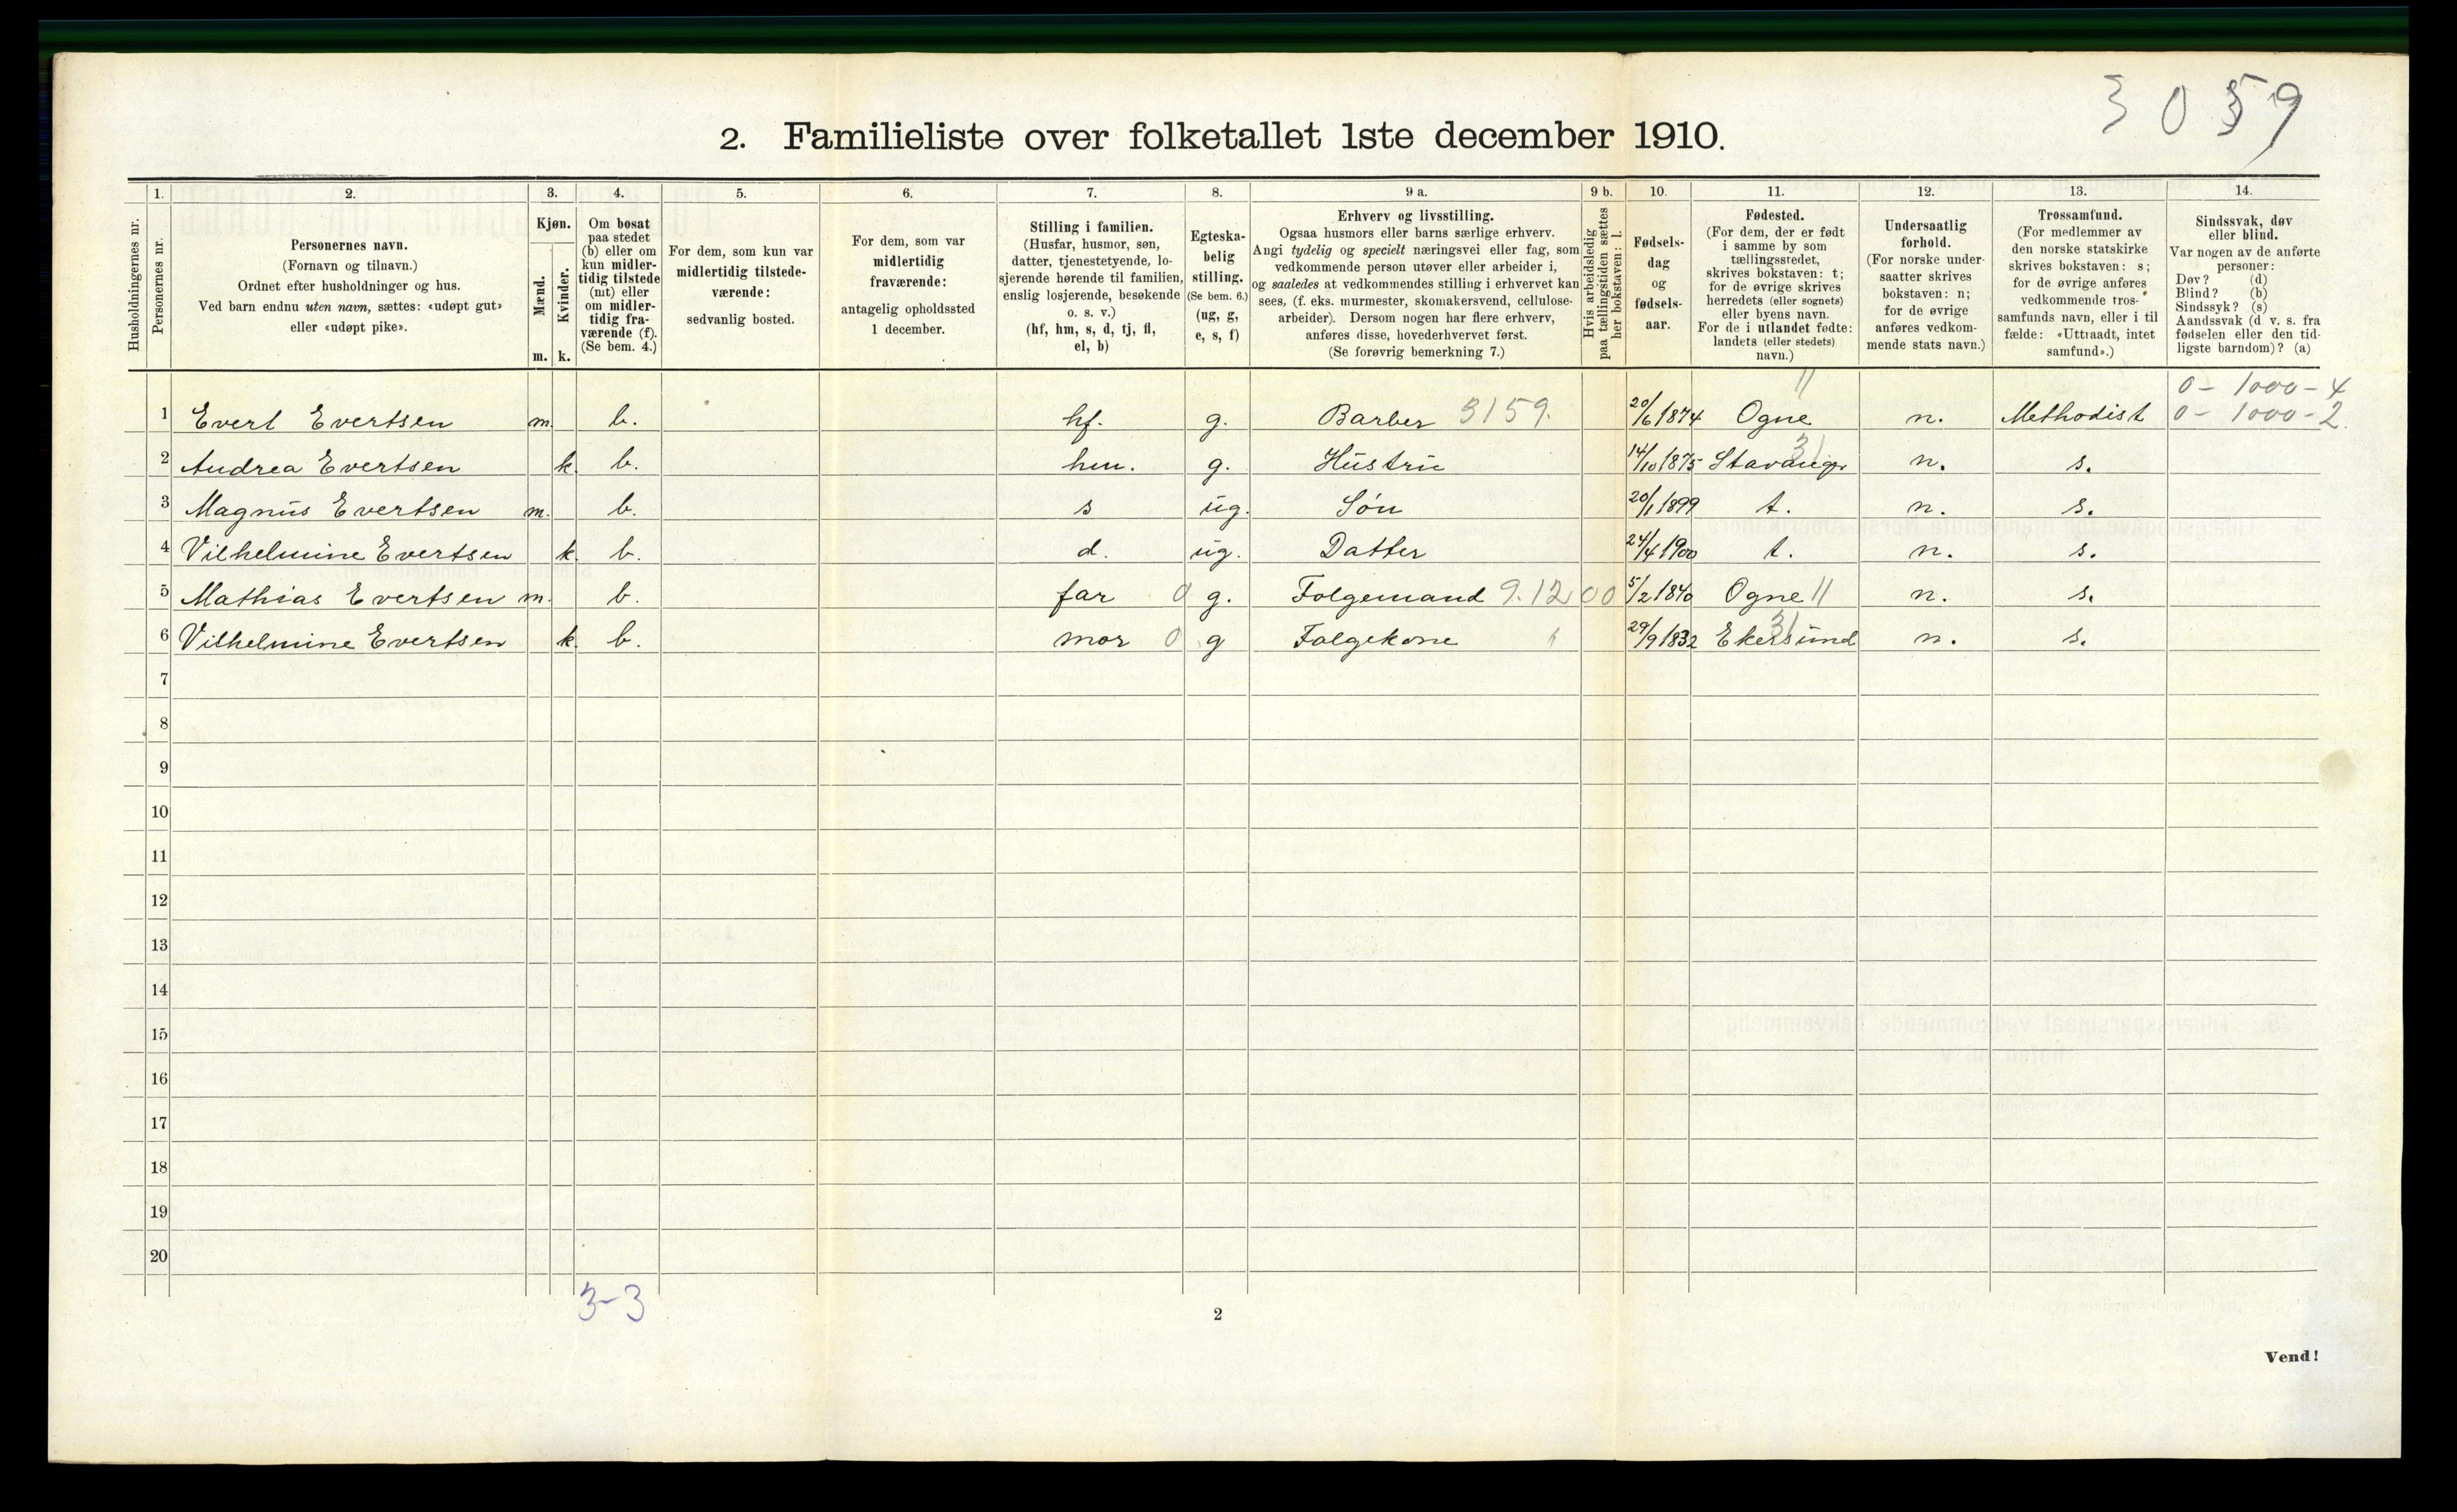 3059
2. Familieliste over folketallet 1ste december 1910.
Husholdningernes nr.
1.
Personernes nr.
2.
Personernes navn.
(Fornavn og tilnavn.)
Ordnet efter husholdninger og hus.
Ved barn endnu uten navn, sættes: «udøpt gut»
eller «udøpt pike».
3.
Kjøn.
Mænd.
Kvinder.
m. k.
4.
Om bosat
paa stedet
(b) eller om
kun midler-
tidig tilstede
(mt) eller
om midler-
tidig fra-
værende (f).
(Se bem. 4.)
5.
For dem, som kun var
midlertidig tilstede-
værende:
sedvanlig bosted.
6.
For dem, som var
midlertidig
fraværende:
antagelig opholdssted
1 december.
7.
Stilling i familien.
(Husfar, husmor, søn,
datter, tjenestetyende, lo-
sjerende hørende til familien,
enslig losjerende, besøkende
o. s. v.)
(hf, hm, s, d, tj, fl,
el, b)
8.
Egteska-
belig
stilling.
(Se bem. 6.)
(ug, g,
e, s, f)
9 a.
Erhverv og livsstilling.
Ogsaa husmors eller barns særlige erhverv.
Angi tydelig og specielt næringsvei eller fag, som
vedkommende person utøver eller arbeider i,
og saaledes at vedkommendes stilling i erhvervet kan
sees, (f. eks. murmester, skomakersvend, cellulose-
arbeider). Dersom nogen har flere erhverv,
anføres disse, hovederhvervet først.
(Se forøvrig bemerkning 7.)
9 b.
Hvis arbeidsledig
paa tællingstiden sættes
her bokstaven: l.
10.
Fødsels-
dag
og
fødsels-
aar.
11.
Fødested.
(For dem, der er født
i samme by som
tællingsstedet,
skrives bokstaven: t;
for de øvrige skrives
herredets (eller sognets)
eller byens navn.
For de i utlandet fødte:
landets (eller stedets)
navn.)
12.
Undersaatlig
forhold.
(For norske under-
saatter skrives
bokstaven: n;
for de øvrige
anføres vedkom-
mende stats navn.)
13.
Trossamfund.
(For medlemmer av
den norske statskirke
skrives bokstaven: s;
for de øvrige anføres
vedkommende tros-
samfunds navn, eller i til
fælde: «Uttraadt, intet
samfund».)
14.
Sindssvak, døv
eller blind.
Var nogen av de anførte
personer:
Døv? (d)
Blind? (b)
Sindssyk? (s)
Aandssvak (d. v. s. fra
fødselen eller den tid-
ligste barndom)? (a)
11 0 - 1000 - 4
1 Evert Evertsen m. b. hf. g. Barber 3159. 20/6 1874 Ogne n. Methodist 0 - 1000 - 2
2 Andrea Evertsen k. b. hm. g. Hustru 14/10 1875 Stavanger 31 n. s.
3 Magnus Evertsen m. b. s ug. Søn 20/1 1899 t. n. s.
4 Vilhelmine Evertsen k. b. d. ug. Datter 24/4 1900 t. n. s.
5 Mathias Evertsen m. b. far 0 g. Folgemand 9.12 00 5/2 1840 Ogne 11 n. s.
6 Vilhelmine Evertsen k. b. mor 0 g Folgekone 29/9 1832 Ekersund 31 n. s.
7
8
9
10
11
12
13
14
15
16
17
18
19
20
3-3
2
Vend!